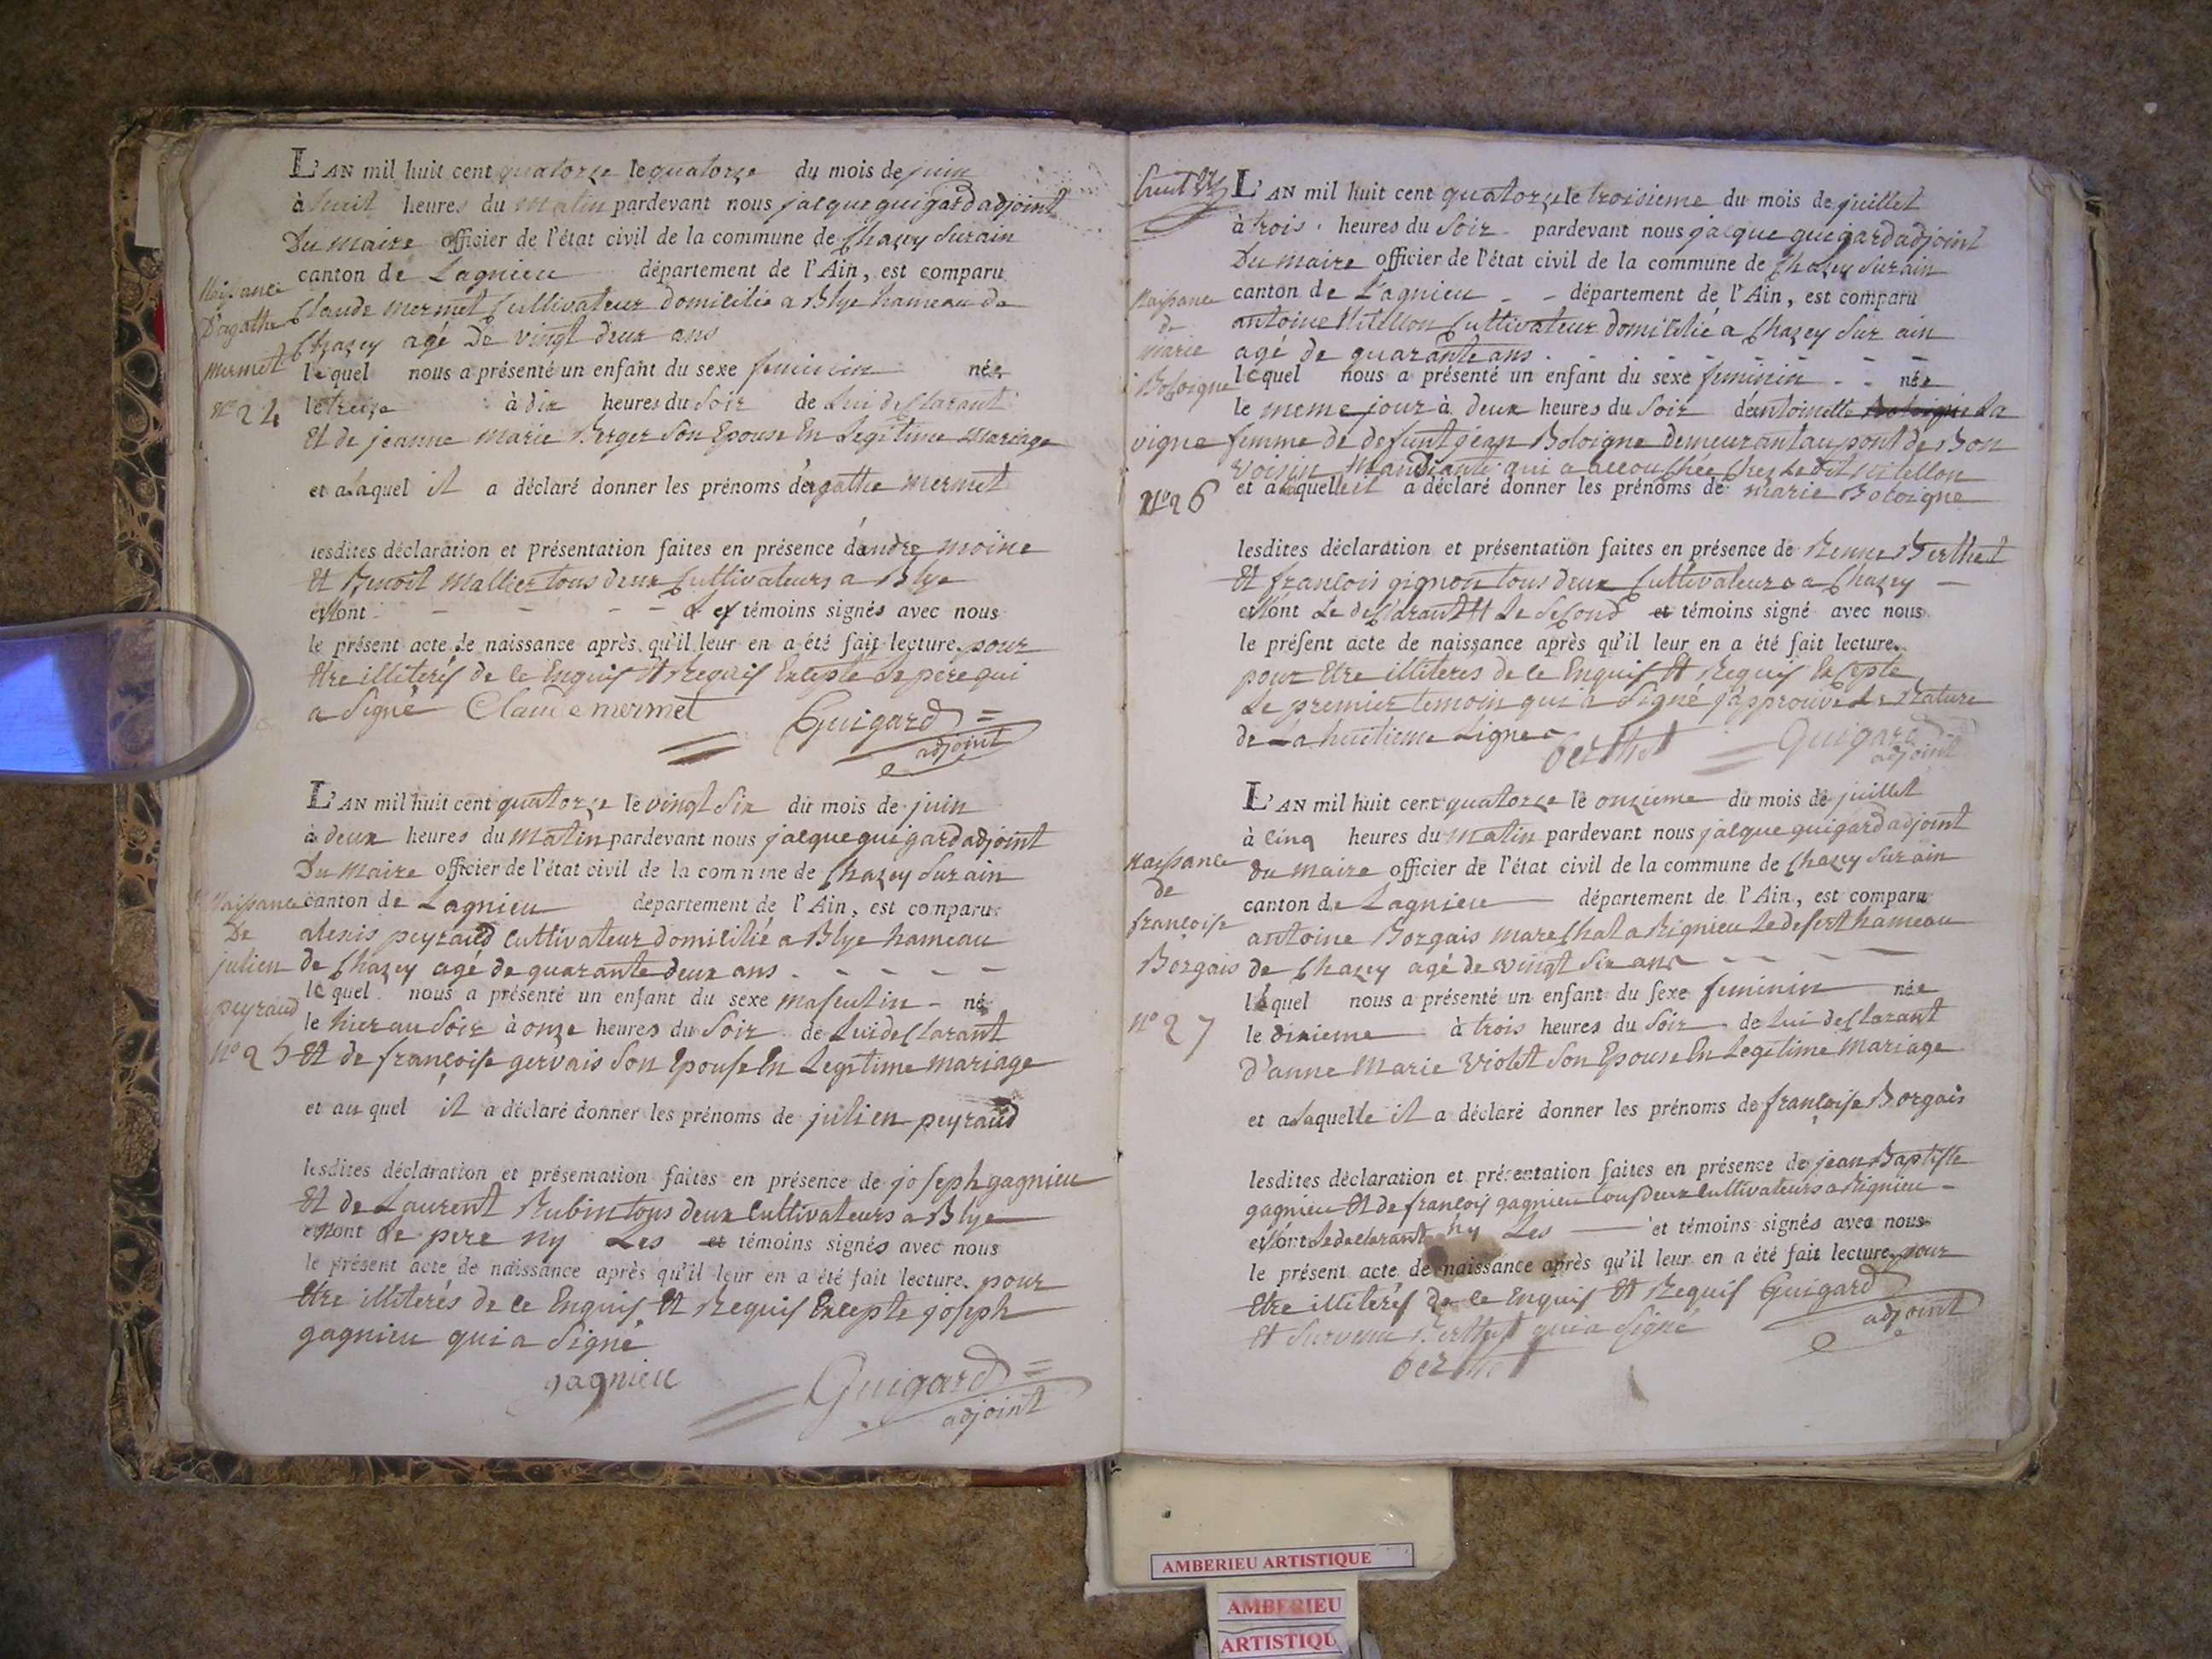 L'AN mil huit cent quatorze le quatorze du mois de juin
à huit heures du matin pardevant nous jacque guigard adjoint
Du maire officier de l'état civil de la commune de Chazey Surain
canton de Lagnieu département de l'Ain, est comparu
Claude mermet Cultivateur domicilié a Blye hameau de
Chazey agé De vingt deux ans
lequel nous a présenté un enfant du sexe feminin née
le treize à dix heures du Soir de Lui desclarant
Et de jeanne marie Berger Son Epouse En Legitime mariage
et a laquel il a déclaré donner les prénoms d'agathe mermet
lesdites déclaration et présentation faites en présence d'andre moine
Et Benoit Mallier tous deux Cultivateurs a Blye
et ont - - - - Les témoins signés avec nous
le présent acte de naissance après qu'il leur en a été fait lecture. pour
Etre illiterés de ce Enquis Et Requis Excepté Le pere qui
a Signé Claude mermet Guigard
adjoint
Naissance
D'agathe
mermet
N° 24
L'AN mil huit cent quatorze le vingt Six du mois de juin
à deux heures du Matin pardevant nous jacque guigard adjoint
Du Maire officier de l'état civil de la commune de Chazey Surain
canton de Lagnieu département de l'Ain, est comparu
alexis peyraud Cultivateur domicilié a Blye hameau
de Chazey agé de quarante deux ans - - - -
lequel nous a présenté un enfant du sexe masculin - né
le hier au Soir à onze heures du Soir de Lui desclarant
Et de françoise gervais Son Epouse En Legitime mariage
et au quel il a déclaré donner les prénoms de julien peyraud
lesdites déclaration et présentation faites en présence de joseph gagnieu
Et de Laurent Rubin tous deux Cultivateurs a Blye
et ont Le pere ny Les et témoins signés avec nous
le présent acte de naissance après qu'il leur en a été fait lecture. pour
Etre illiterés de ce Enquis Et Requis Excepte joseph
gagnieu qui a Signé
gagnieu Guigard
adjoint
Naissance
De
julien
peyraud
N° 25
L'AN mil huit cent quatorze le troisieme du mois de juillet
à trois heures du Soir pardevant nous jacque guigard adjoint
Du maire officier de l'état civil de la commune de Chazey Surain
canton de Lagnieu - - département de l'Ain, est comparu
antoine Vitellon Cultivateur domicilié a Chazey Sur ain
agé de quarante ans - - - -
lequel nous a présenté un enfant du sexe feminin - - née
le meme jour à deux heures du Soir d'antoinette La
vigne femme de defunt jean Boloigne demeurant au pont de Bon
voisin Mandiante qui a accouchée chez Le dit Vitellon
et a laquelle il a déclaré donner les prénoms de marie Boloigne
lesdites déclaration et présentation faites en présence de Benne Berthet
Et françois gignon tous deux Cultivateurs a Chazey -
et ont Le desclarant Et Le Second et témoins signé avec nous
le présent acte de naissance après qu'il leur en a été fait lecture.
pour Etre illiteres de ce Enquis Et Requis Excepte
Le premier temoin qui a Signé j'approuve La Rature
de La huitieme Ligne
berthet Guigard
adjoint
Naissance
de
marie
Boloigne
N° 26
L'AN mil huit cent quatorze le onzieme du mois de juillet
à cinq heures du Matin pardevant nous jacque guigard adjoint
du maire officier de l'état civil de la commune de Chazey Sur ain
canton de Lagnieu département de l'Ain, est comparu
antoine Borgais mareschal a Rignieu Le desert hameau
de Chazey agé de vingt Six ans - - - -
lequel nous a présenté un enfant du sexe feminin née
le dixieme à trois heures du Soir de Lui desclarant
d'anne Marie Violet Son Epouse En Legitime Mariage
et a laquelle il a déclaré donner les prénoms de françoise Borgais
lesdites déclaration et présentation faites en présence de jean Baptiste
gagnieu Et de françois gagnieu tous deux Cultivateurs a Rignieu -
et ont Le declarant ny Les et témoins signés avec nous
le présent acte de naissance après qu'il leur en a été fait lecture. pour
Etre illiterés de ce Enquis Et Requis Guigard
adjoint
Et Survenu Berthet qui a Signé
berthet
Naissance
de
françoise
Borgais
N° 27
AMBERIEU ARTISTIQUE
AMBERIEU
ARTISTIQU